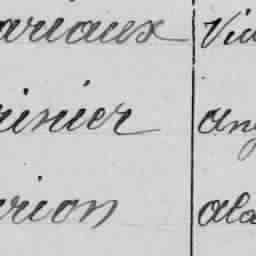 ariaux Viu
rinier Ang
rion Ala